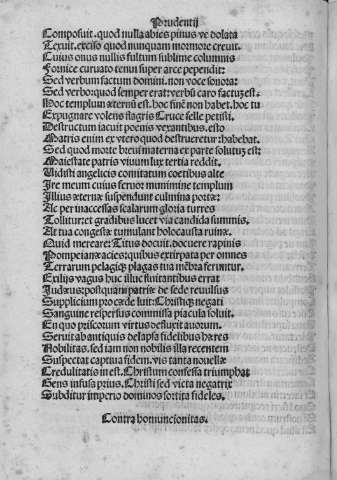 Prudentij
Composuit. quod nulla abies pinus ve dolata
Texuit. exciso quod nunquam mormore creuit.
Cuius onus nullis fultum sublime columnis
Fornice curuato tenui super arce pependit:
Sed verbum factum domini. non voce sonora:
Sed verbo: quod semper erat: verbū caro factuȝ est.
Hoc templum æternū est. hoc finē non habet. hoc tu
Expugnare volens flagris Cruce felle petisti.
Destructum iacuit poenis vexantibus. esto
Matris enim ex vtero quod destrueretur: habebat.
Sed quod morte breui materna ex parte solutuȝ est:
Maiestate patris viuum lux tertia reddit.
Vidisti angelicis comitatum coetibus alte
Ire meum cuius feruor munimine templum
Illius æternæ suspendunt culmina portæ:
Ac per inaccessas scalarum gloria turres
Tollitur: et gradibus lucet via candida summis.
At tua congestæ tumulant holocausta ruinæ.
Quid mereare: Titus docuit. docuere rapinis
Pompeianæ acies: quibus extirpata per omnes
Terrarum pelagiqȝ plagas tua mēbra feruntur.
Exilijs vagus huc illuc fluitantibus errat
Iudæus: postquam patria de sede reuulsus
Supplicium pro cæde luit: Christiqȝ negati
Sanguine respersus commissa piacula soluit.
En quo priscorum virtus defluxit auorum.
Seruit ab antiquis delapsa fidelibus hæres
Nobilitas. sed iam non nobilis illa recentem
Suspectat captiua fidem. vis tanta nouellæ
Credulitatis inest. Christum confessa triumphat
Gens infusa prius. Christi sed victa negatrix
Subditur imperio dominos sortita fideles.
Contra homuncionitas.